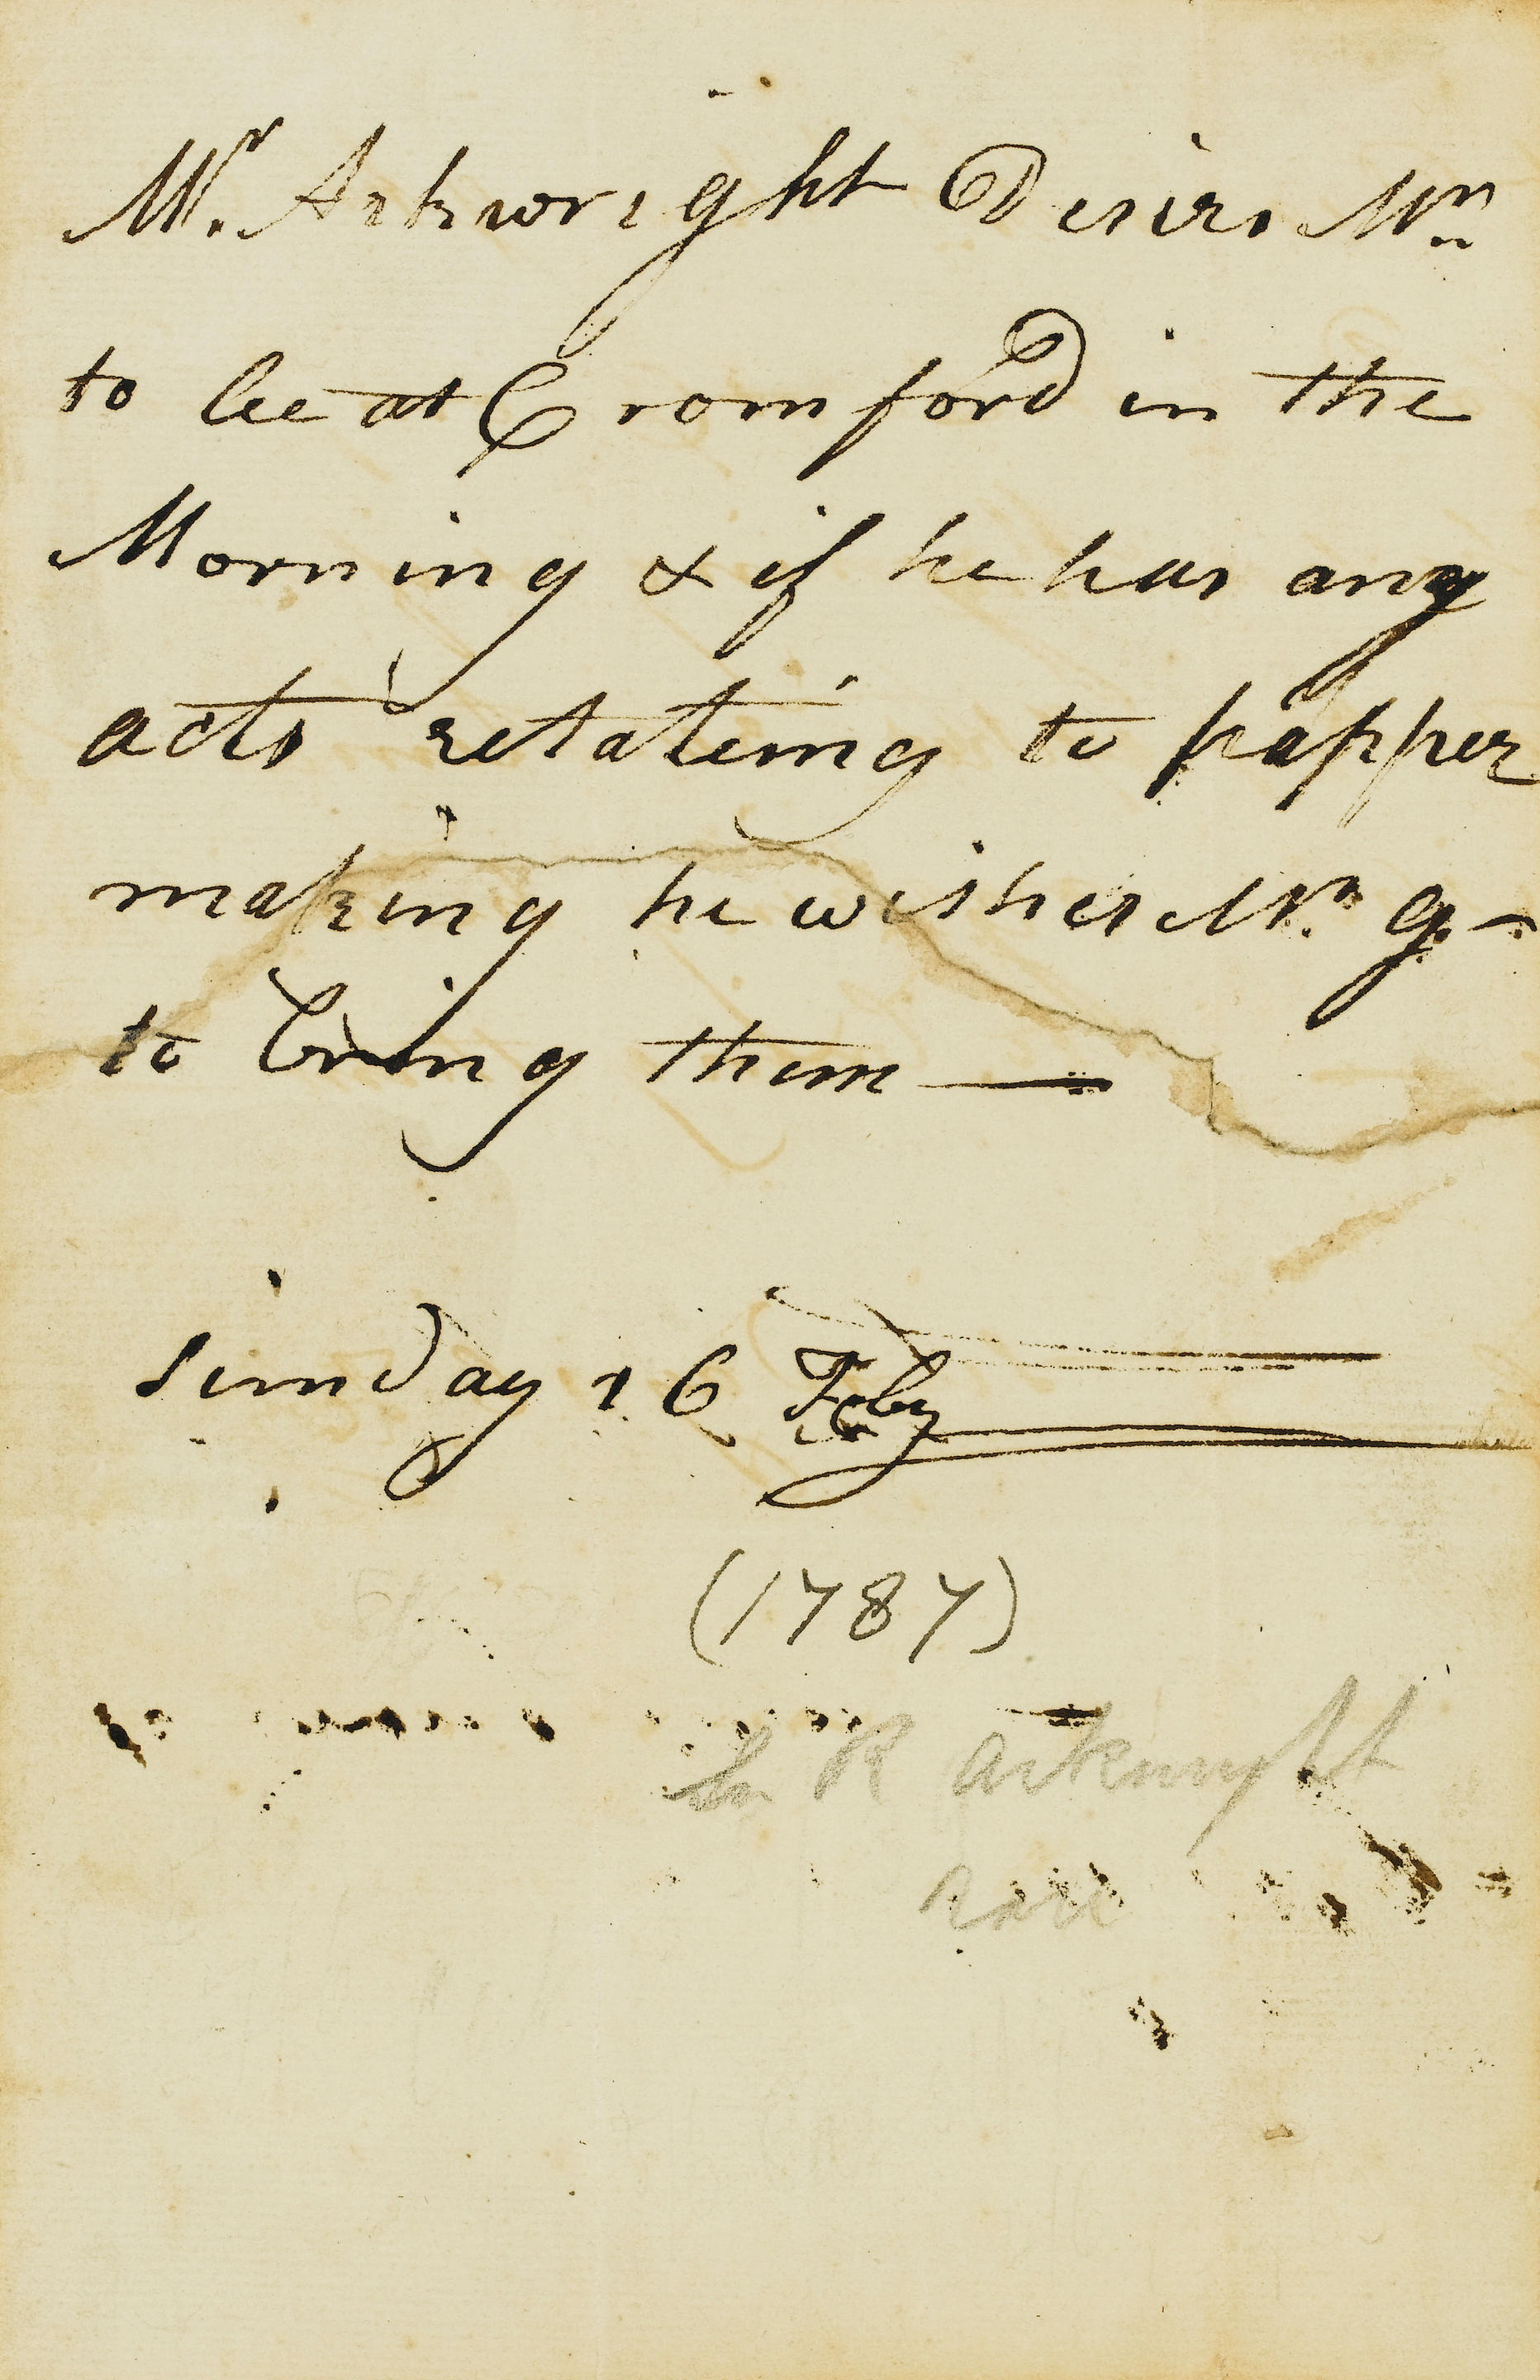 Mr. Arkwright Desires Mr
to be at Cromford in the
Morning & if he has any
acts retateing to papper
making he wishes Mr. G-
to bring them —
Sunday 16 Feby
(1787)
R Arkwright